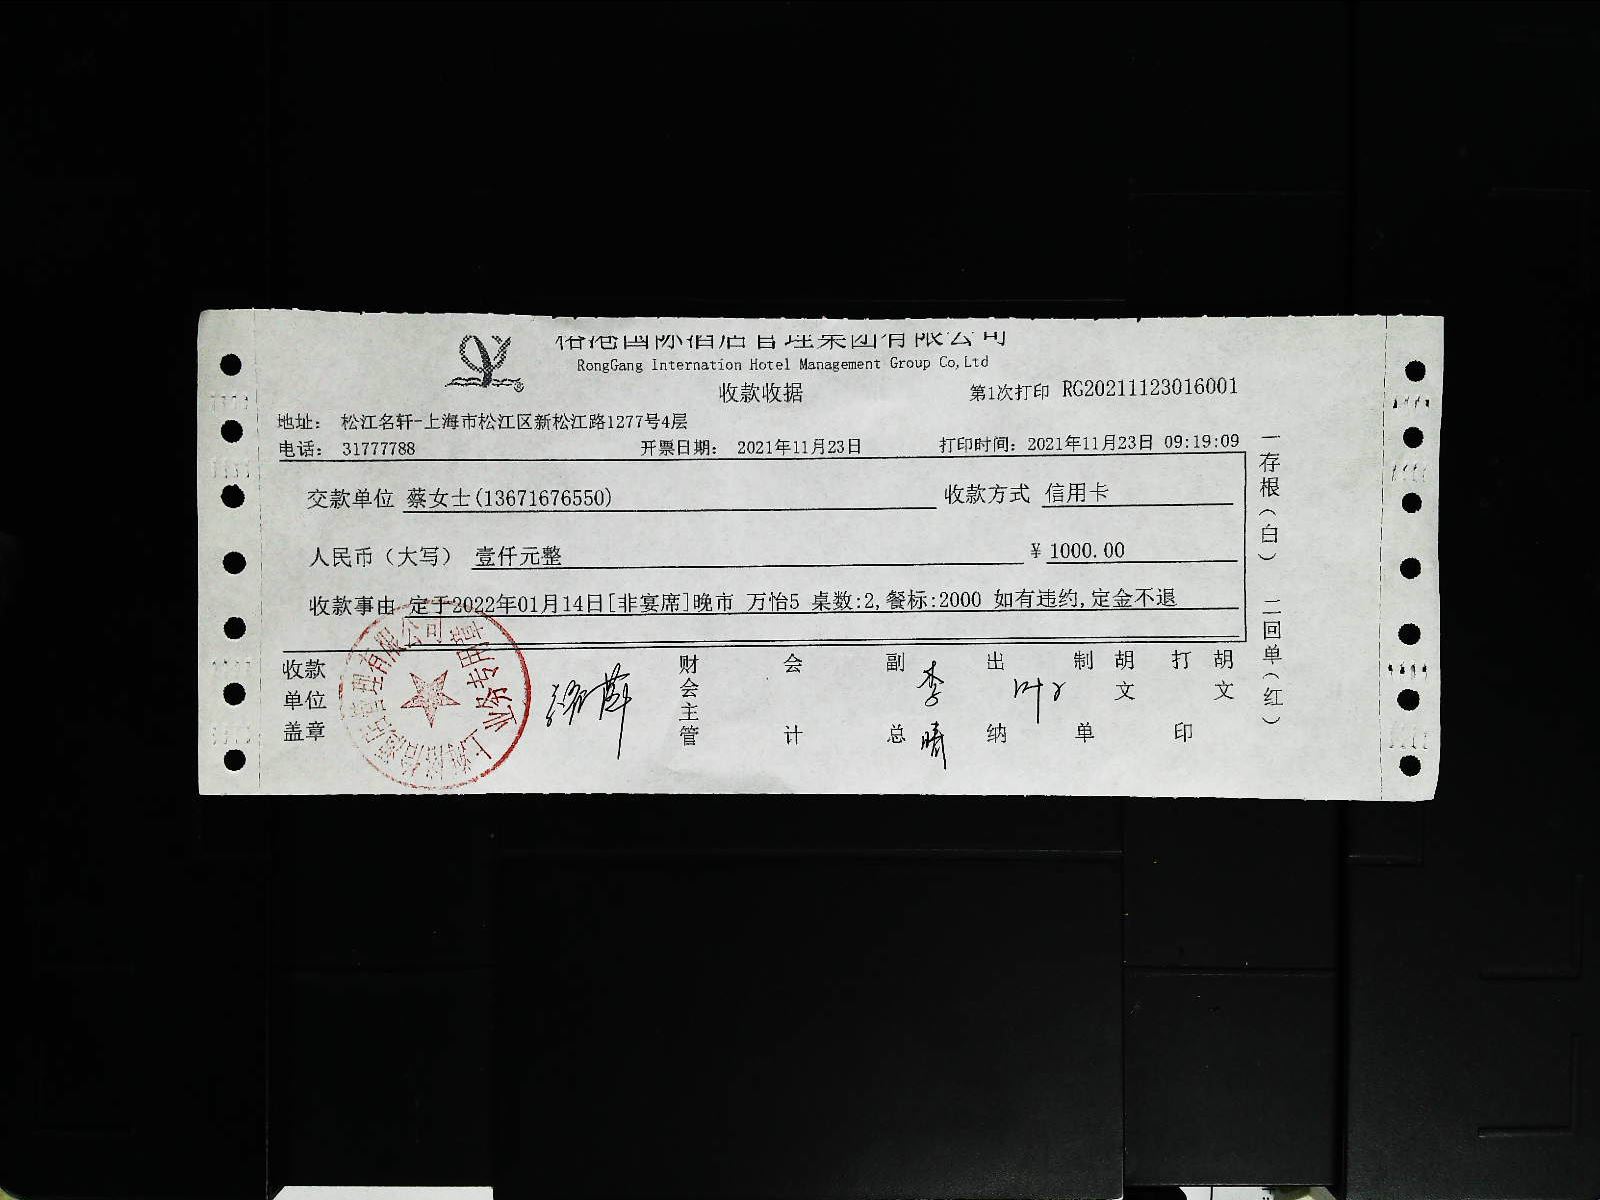 榕港国际酒店管理集团有限公司
RongGang Internation Hotel Management Group Co,Ltd
收款收据
第1次打印 RG20211123016001
地址: 松江名轩-上海市松江区新松江路1277号4层
电话: 31777788 开票日期: 2021年11月23日 打印时间: 2021年11月23日 09:19:09
交款单位 蔡女士(13671676550) 收款方式 信用卡
人民币(大写) 壹仟元整 ¥ 1000.00
收款事由 定于2022年01月14日[非宴席]晚市 万怡5 桌数:2,餐标:2000 如有违约,定金不退
收款单位盖章 财会主管 会计 副总 李晴 出纳 制单 胡文 打印 胡文
一存根(白) 二回单(红)
酒店管理有限公司
业务专用章